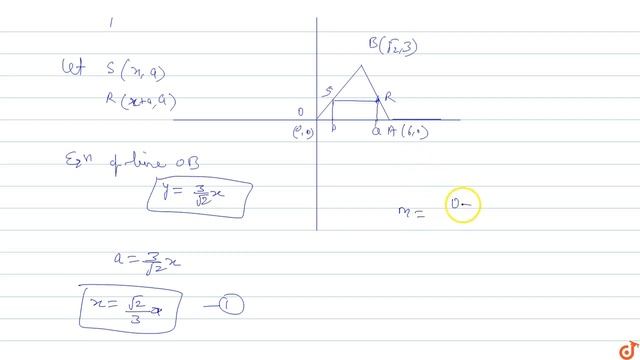 B(√2,3)
Let S(x,a)
S
R
R(x+a,a)
O
(0,0) P Q A(6,0)
Eqn of line OB
y = 3/√2 x
m = 0-
a = 3/√2 x
x = √2/3 a —①